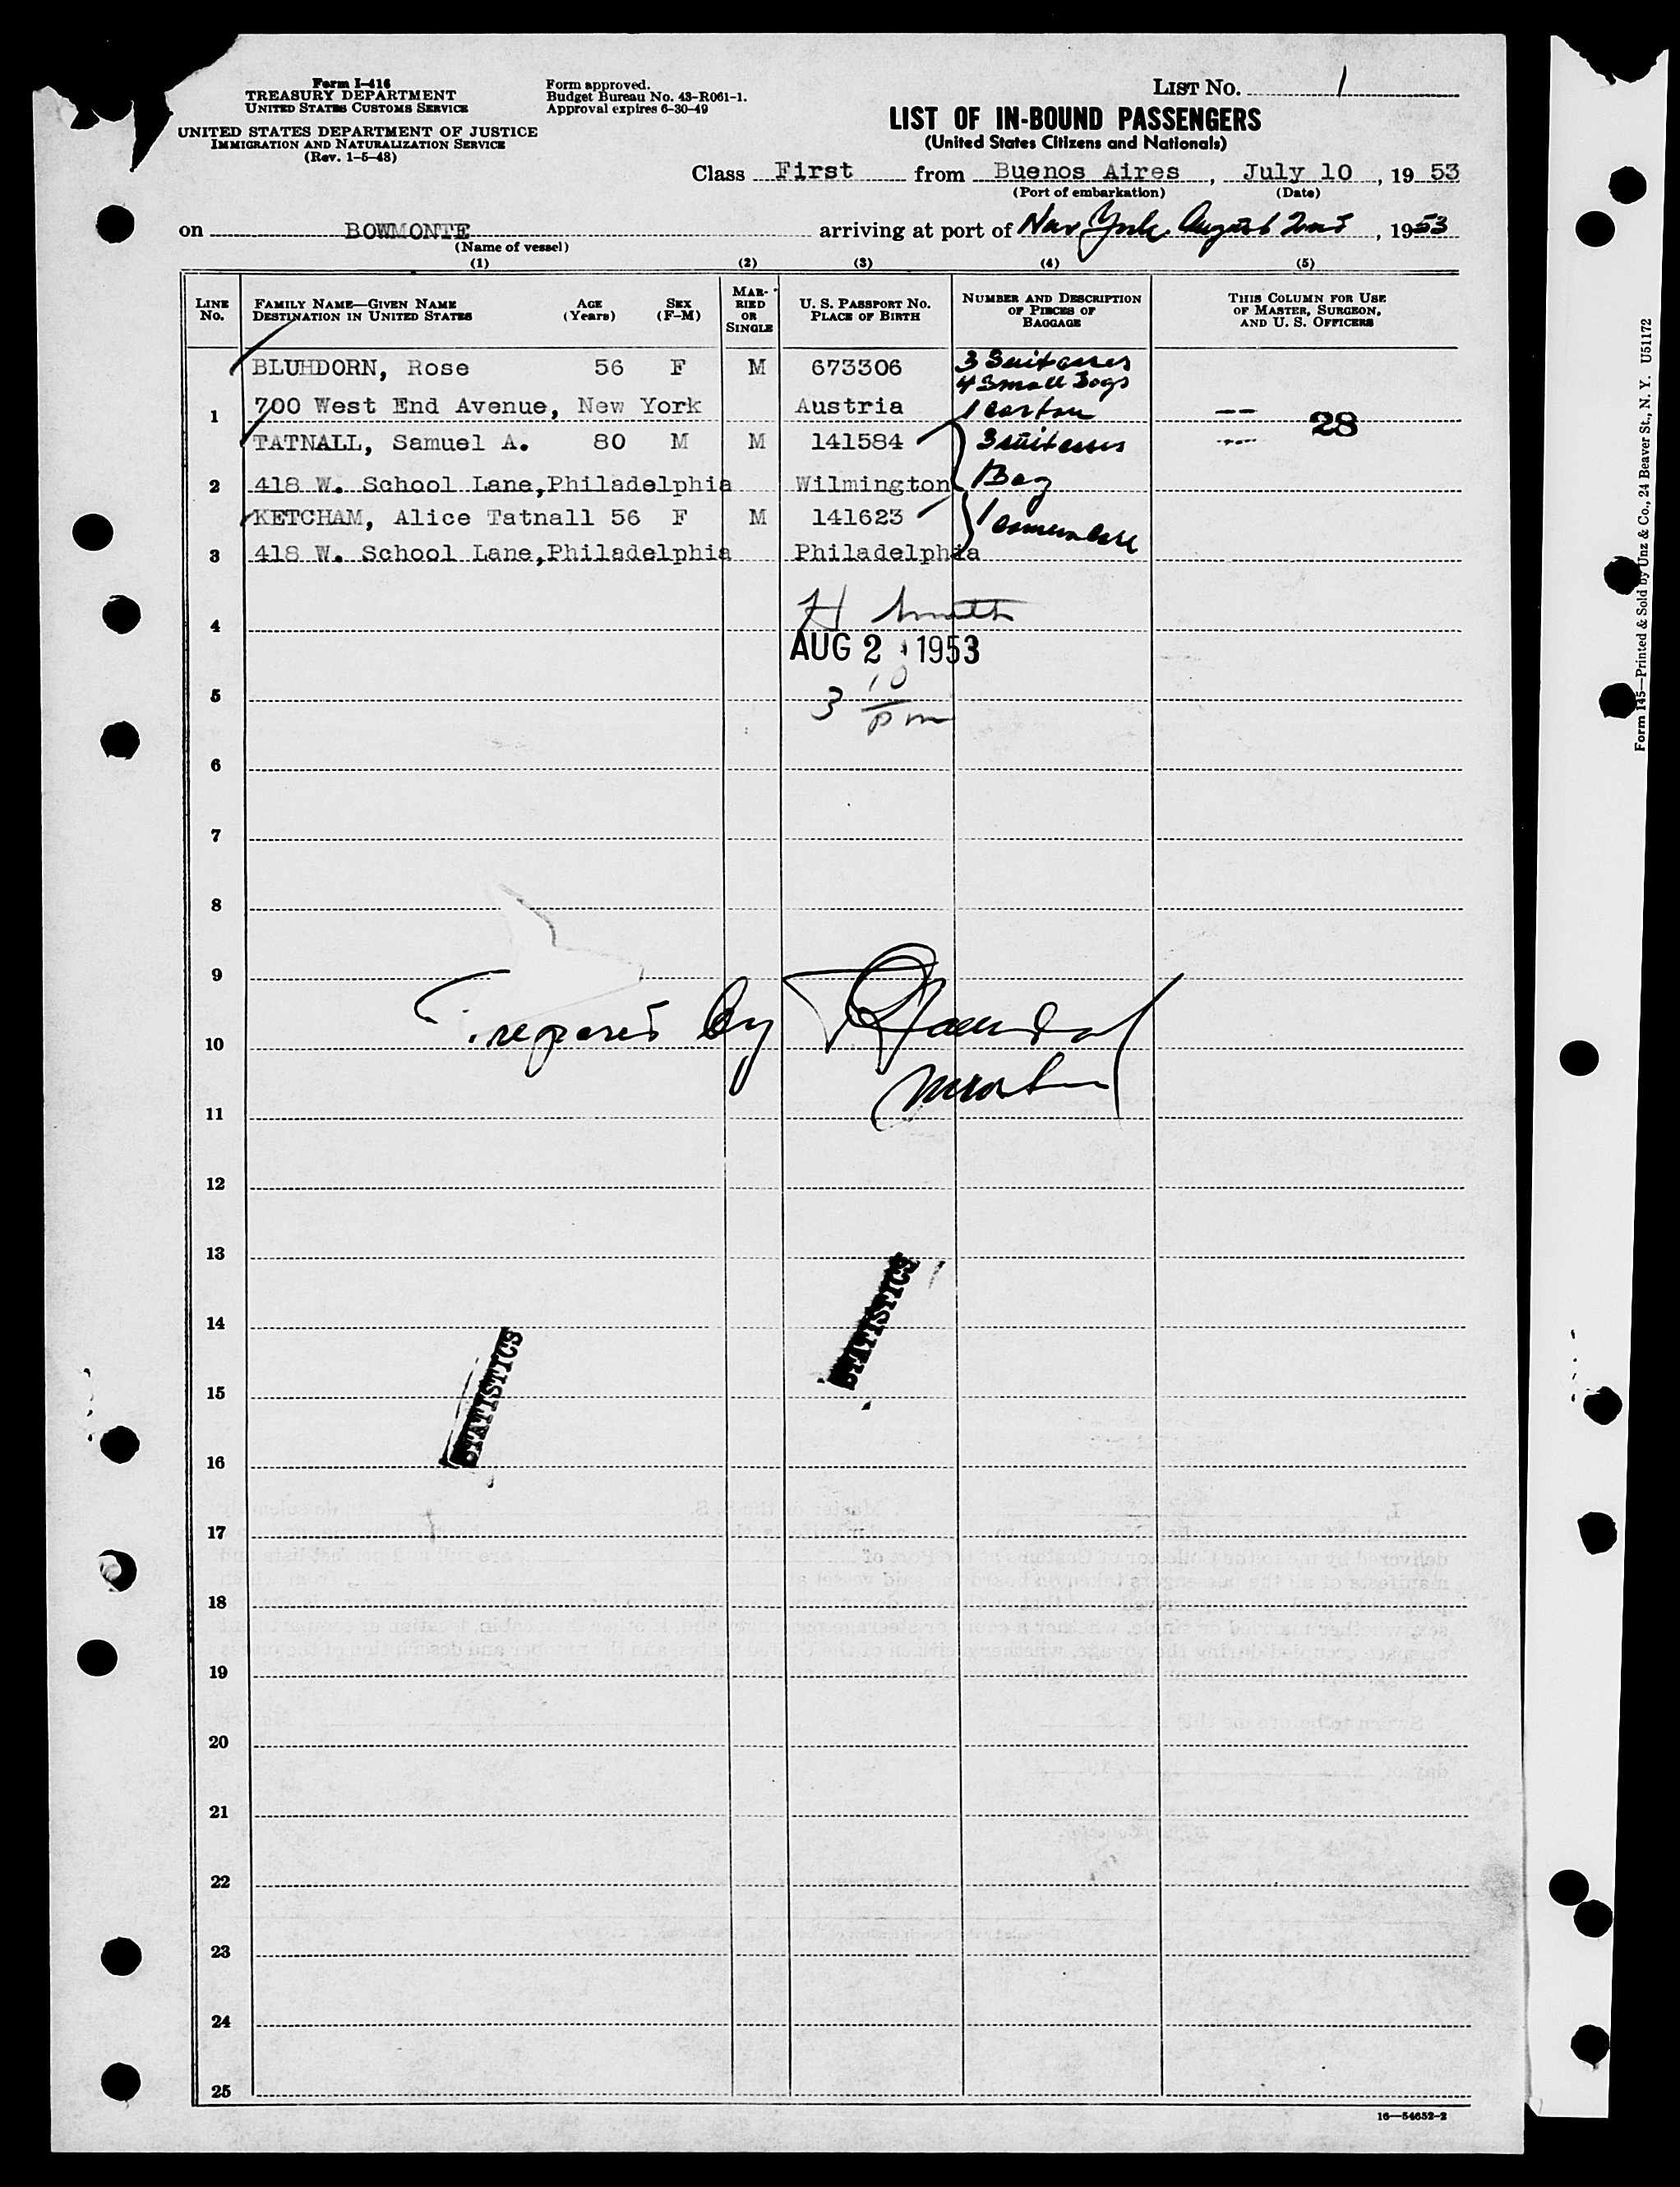 Form I-416
TREASURY DEPARTMENT
UNITED STATES CUSTOMS SERVICE
UNITED STATES DEPARTMENT OF JUSTICE
IMMIGRATION AND NATURALIZATION SERVICE
(Rev. 1-5-48)
Form approved.
Budget Bureau No. 43-R061-1.
Approval expires 6-30-49
LIST No. 1
LIST OF IN-BOUND PASSENGERS
(United States Citizens and Nationals)
Class First from Buenos Aires, July 10, 19 53
(Port of embarkation) (Date)
on BOWMONTE arriving at port of New York August 2nd, 1953
(Name of vessel)
(1) (2) (3) (4) (5)
LINE No.
FAMILY NAME—GIVEN NAME
DESTINATION IN UNITED STATES
AGE (Years)
SEX (F-M)
MARRIED OR SINGLE
U. S. PASSPORT No.
PLACE OF BIRTH
NUMBER AND DESCRIPTION OF PIECES OF BAGGAGE
THIS COLUMN FOR USE OF MASTER, SURGEON, AND U. S. OFFICERS
BLUHDORN, Rose 56 F M 673306 3 Suitcases
4 Small Bags
1 700 West End Avenue, New York Austria 1 Carton -- 28
TATNALL, Samuel A. 80 M M 141584 3 suitcases ----
2 418 W. School Lane, Philadelphia Wilmington 1 Bag
KETCHAM, Alice Tatnall 56 F M 141623
3 418 W. School Lane, Philadelphia Philadelphia 1 camera case
H Smith
4
AUG 2 1953
5 3 10 pm
6
7
8
9
10 Prepared by
11
12
13
STATISTICS
14
STATISTICS
15
16
17
18
19
20
21
22
23
24
25
16—54652-2
Form 145—Printed & Sold by Unz & Co., 24 Beaver St., N. Y. U51172